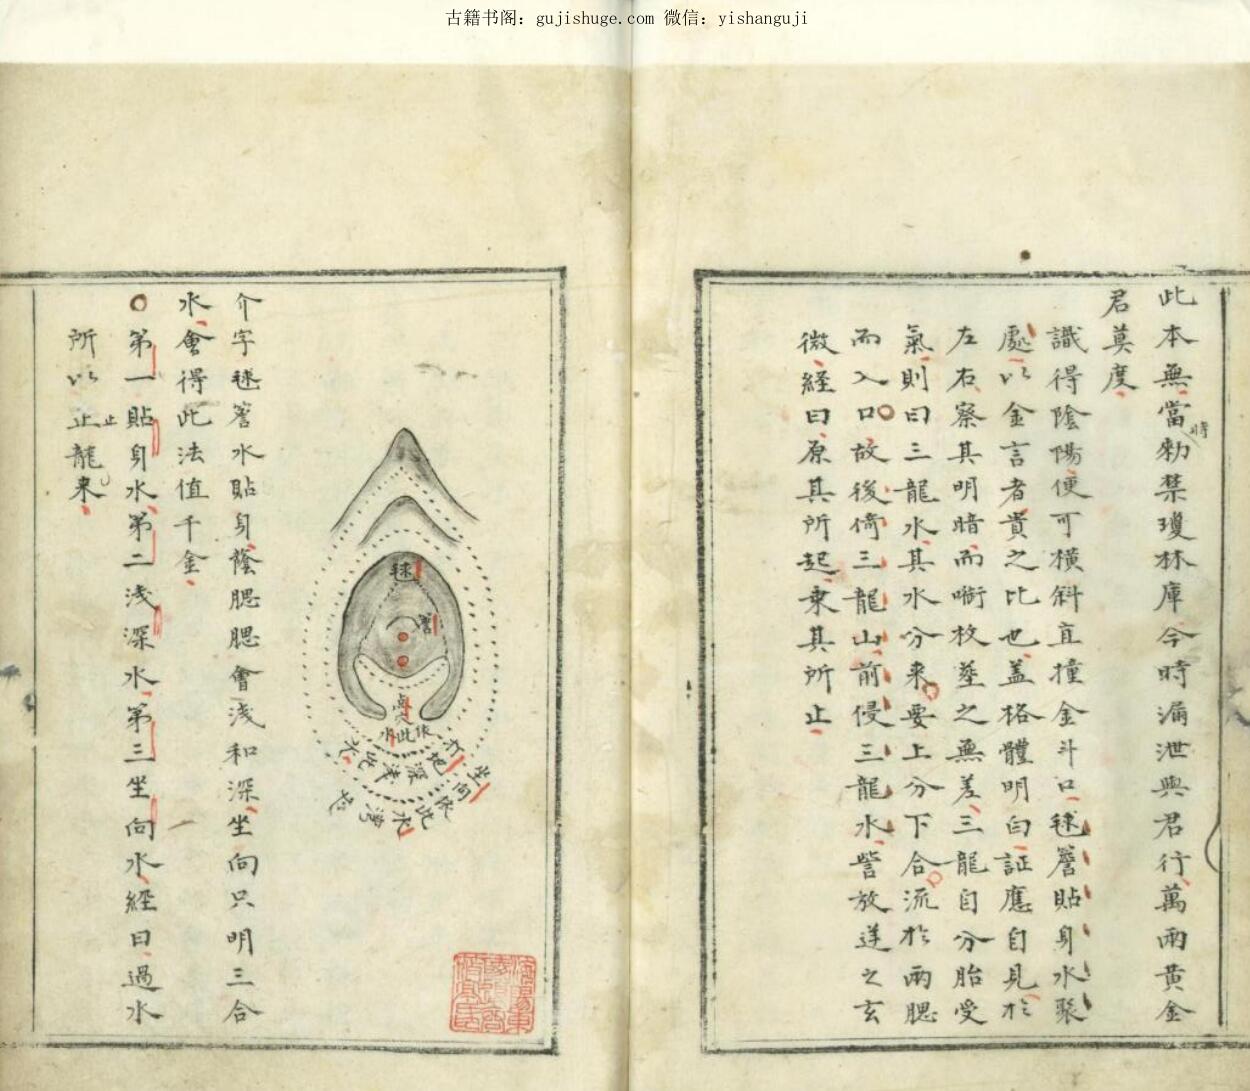 古籍书阁：gujishuge.com 微信：yishanguji
此本無當時勑禁瓊林庫今時漏泄與君行萬兩黃金
君莫度
識得陰陽便可橫斜直撞金斗口毬簷貼身水聚
處以金言者貴之比也盖格體明白証應自見扵
左右察其明暗而啣枚塟之無差三龍自分胎受
氣則曰三龍水其水分來要上分下合流扵兩腮
而入口故後倚三龍山前侵三龍水訾放送之玄
微經曰原其所起乘其所止
毬
簷
依此
坐向依此水
介字毬簷水貼身蔭腮腮會浅和深坐向只明三合
水會得此法值千金
第一貼身水第二浅深水第三坐向水經曰過水
所以止龍來
止